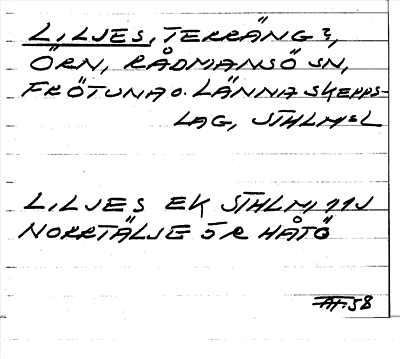 LILJES, TERRÄNG?,
ÖRN, RÅDMANSÖ SN,
FRÖTUNA O. LÄNNA SKEPPS-
LAG, STHLMSL
LILJES EK STHLM 11J
NORRTÄLJE 5R HÅTÖ
58